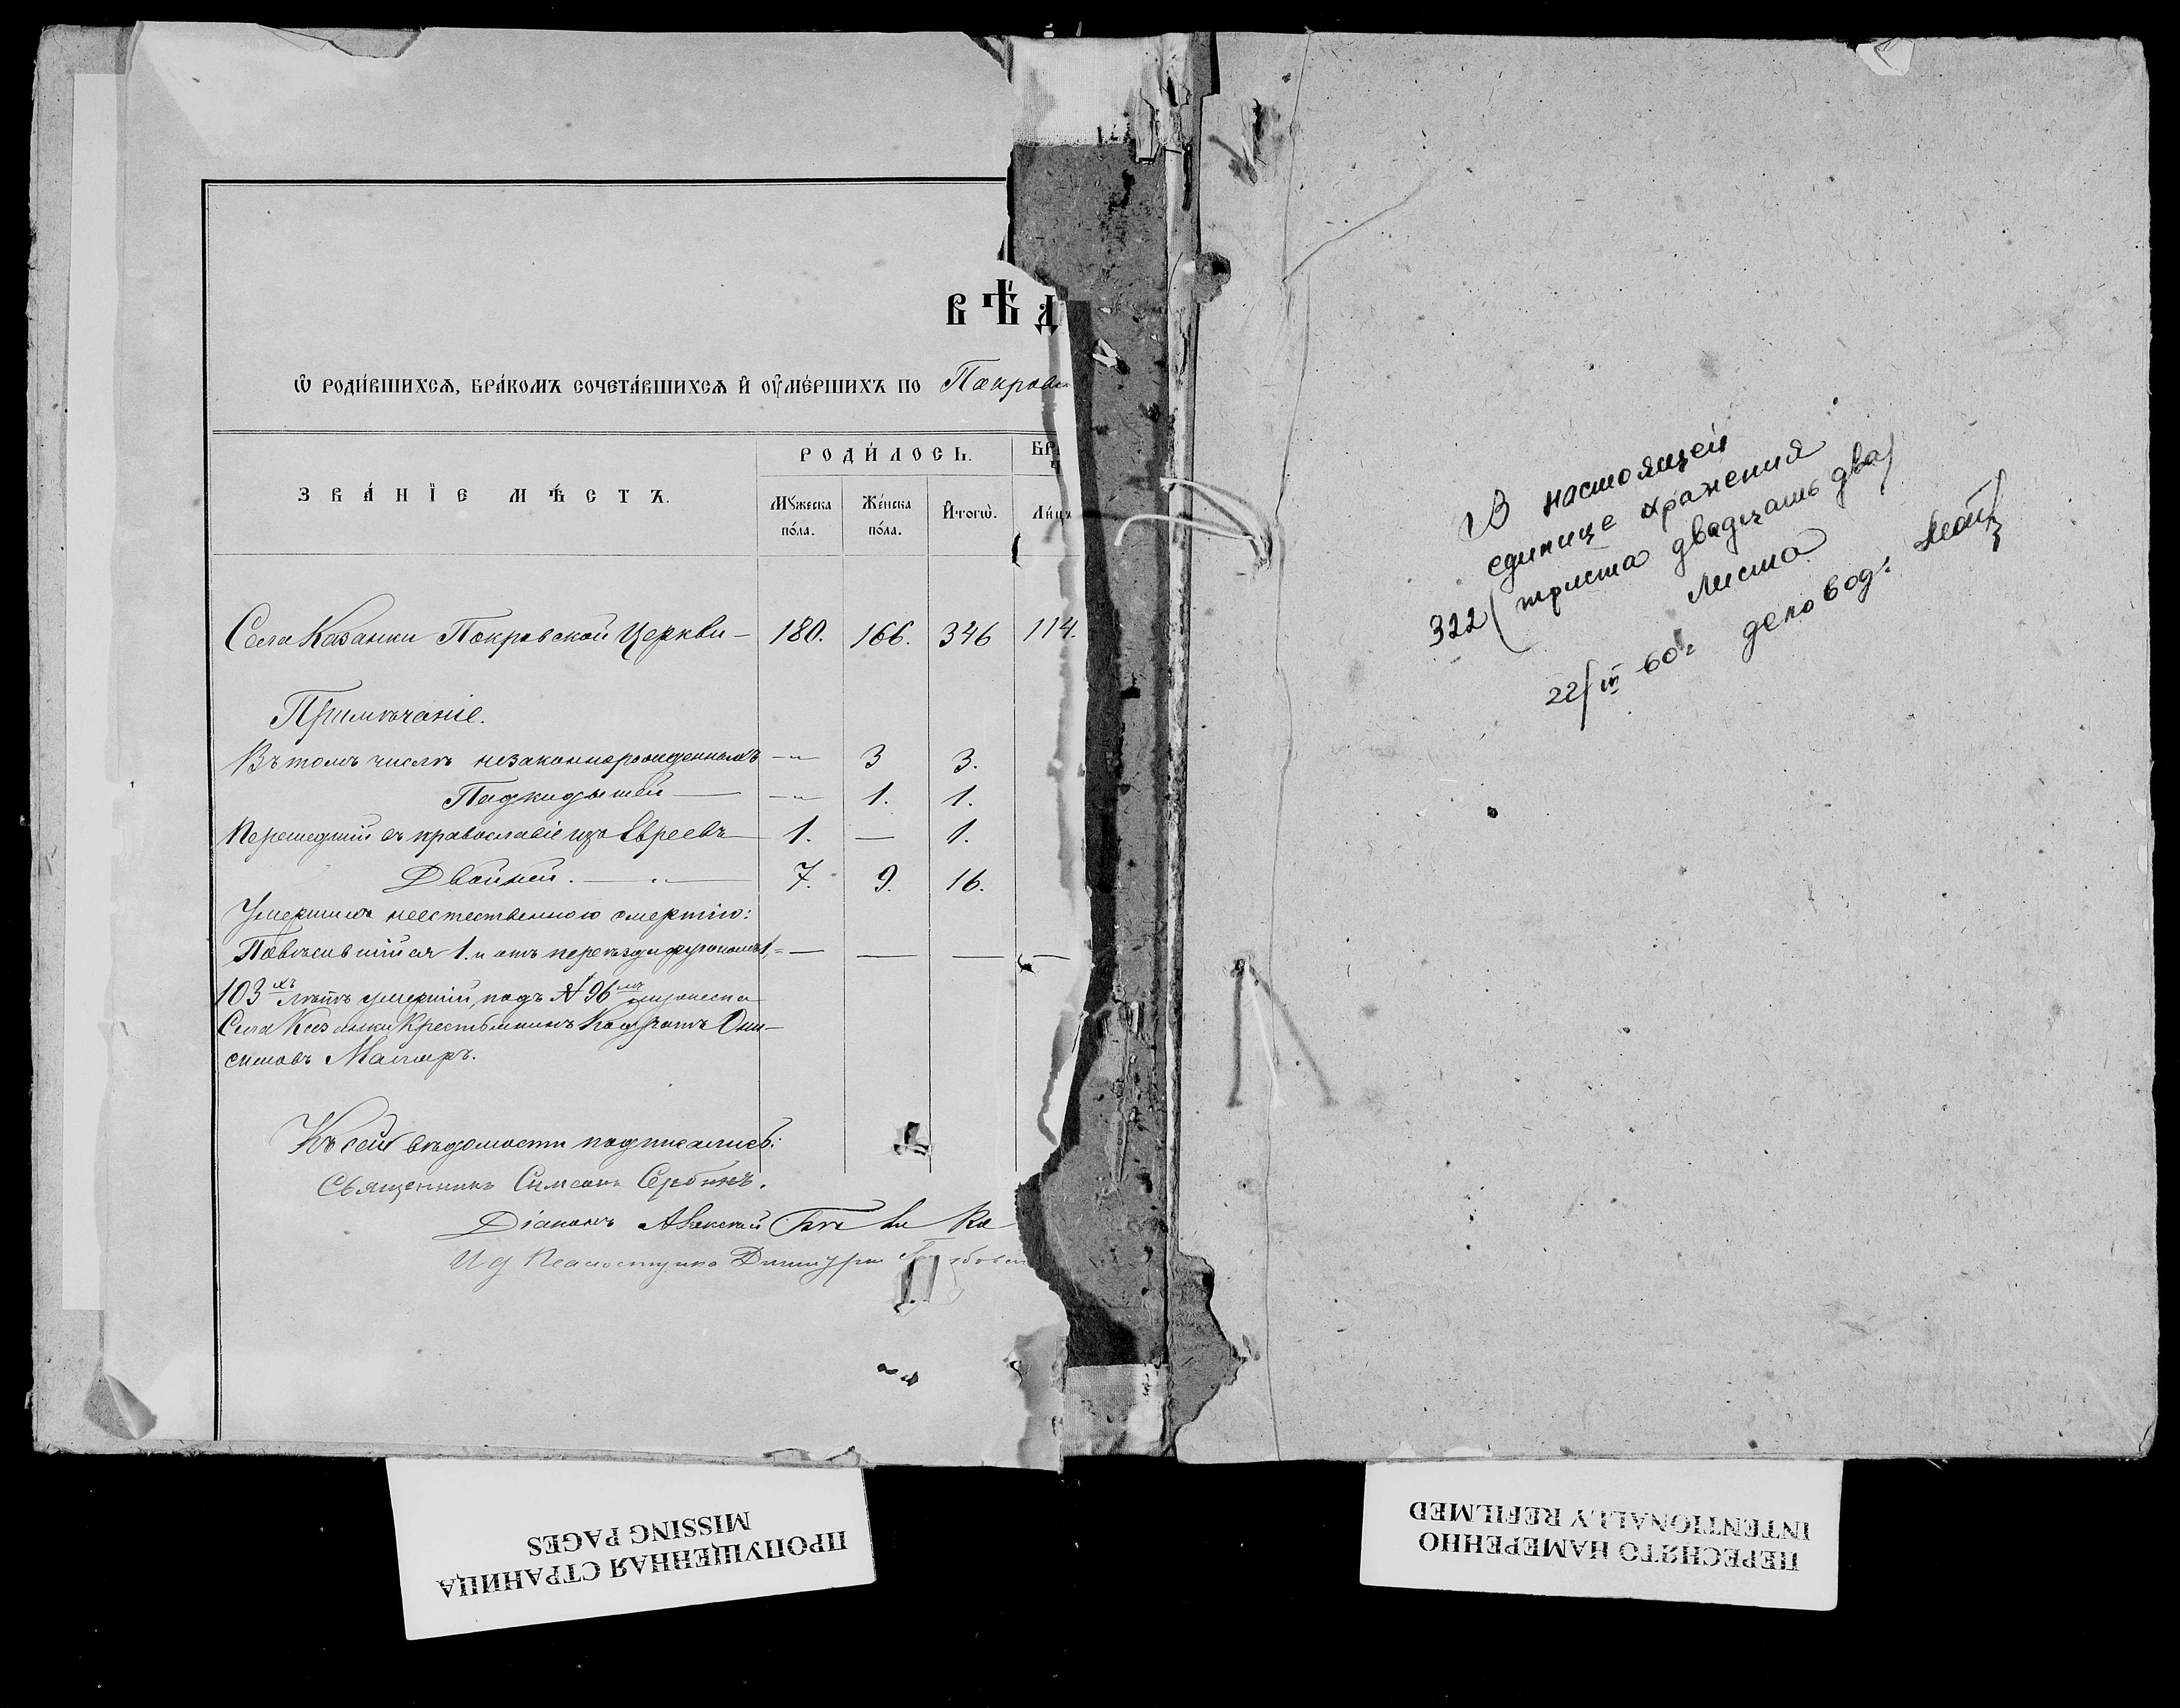 ВѢ́Д
Ѡ РОДИ́ВШИХСѦ, БРА́КОМЪ СОЧЕТА́ВШИХСѦ И҆ ОУ҆МЕ́РШИХЪ ПО Покров
ЗВА́НЇЕ МѢ́СТЪ.
РОДИ́ЛОСЬ.
БР
Мꙋ́жеска по́ла.
Же́нска по́ла.
И҆тогѡ̀.
Ли́цъ
Села Казанки Покровской Церкви – 180. 166. 346 114.
Примѣчаніе.
Въ томъ числѣ незаконнорожденныхъ – „ – 3 3.
Подкидышей — – „ – 1. 1.
Перешедшій въ православіе изъ Евреевъ 1. — 1.
Двойней. — „ — 7. 9. 16.
Умершихъ неестественною смертію:
Повѣсившійся 1. и отъ переѣзда 1, – — — — —
103хъ лѣтъ умершій, подъ № 96мъ
Села Казанки Крестьянинъ Кондратъ Они-
симовъ
Къ сей вѣдомости подписались:
Священникъ Симеонъ Сербинъ.
Діаконъ Алексѣй
И д Псаломщика Димитрій
В настоящей
единице хранения
322 (триста двадцать два)
листа
22/III 60г. деловод.
ПРОПУЩЕННАЯ СТРАНИЦА
MISSING PAGES
ПЕРЕСНЯТО НАМЕРЕННО
INTENTIONALLY REFILMED